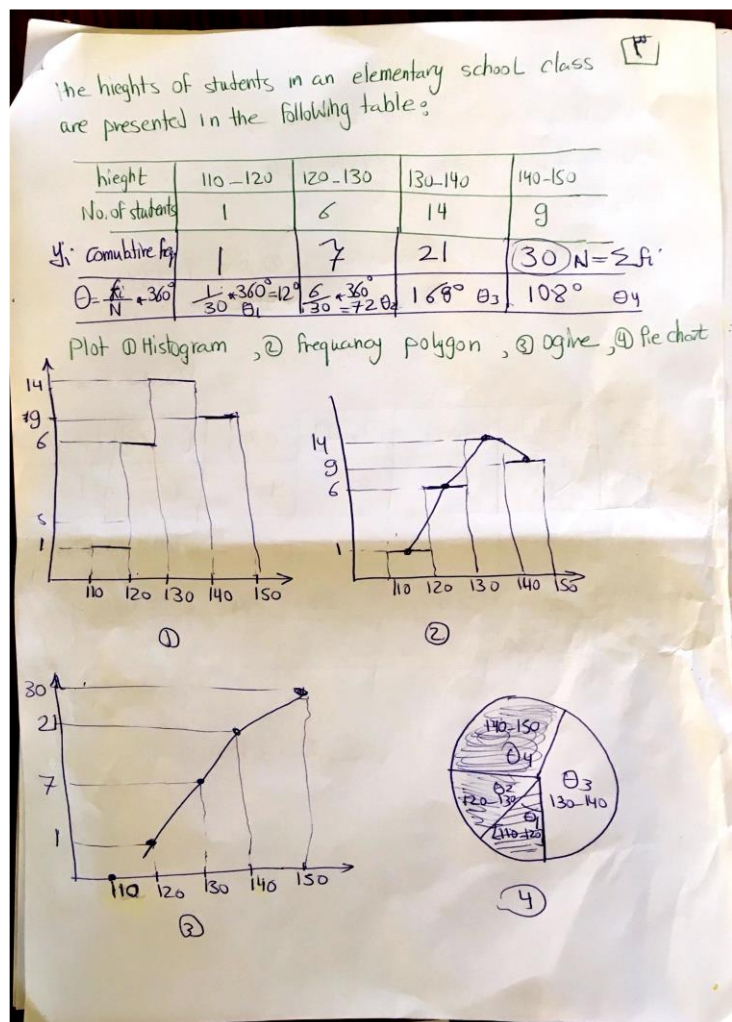 ٣
the hieghts of students in an elementary school class
are presented in the following table:
hieght 110-120 120-130 130-140 140-150
No. of students 1 6 14 9
yi comulative freq 1 7 21 30 N=Σfi
θ=fi/N *360° 1/30 *360°=12° θ1 6/30 *360°=72 θ2 168° θ3 108° θ4
Plot ① Histogram, ② frequancy polygon, ③ Ogive, ④ Pie chart
14
9
6
5
1
110 120 130 140 150
①
14
9
6
1
110 120 130 140 150
②
30
21
7
1
110 120 130 140 150
③
140-150
θ4
θ3
130-140
θ2
120-130
θ1
110-120
④